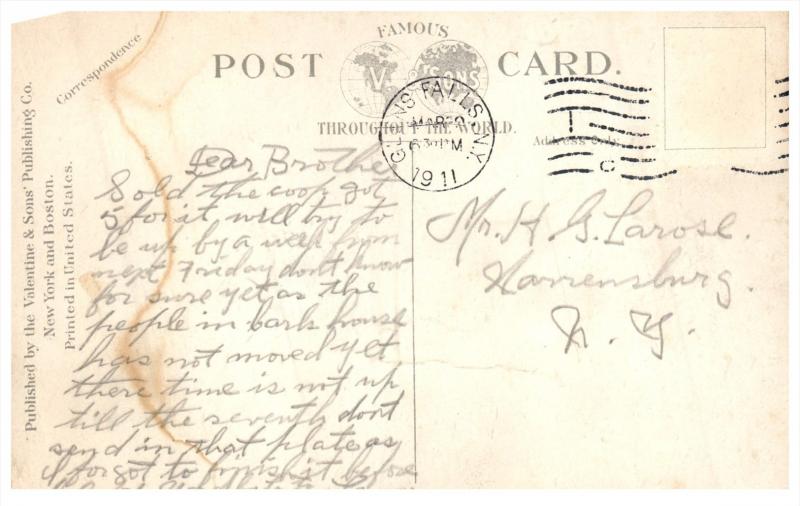 FAMOUS
POST CARD.
V & SONS
THROUGHOUT THE WORLD.
Correspondence
Address Only.
Published by the Valentine & Sons' Publishing Co.
New York and Boston.
Printed in United States.
GLENS FALLS, N.Y.
MAR
630 PM
1911
Dear Brother
Sold the coop got
5 for it will try to
be up by a week from
next Friday dont know
for sure yet as the
people in barls house
has not moved yet
there time is not up
till the seventh dont
send in that plate as
I forgot to finish it before
Mr. H. G. Larose.
Warrensburg.
N. Y.